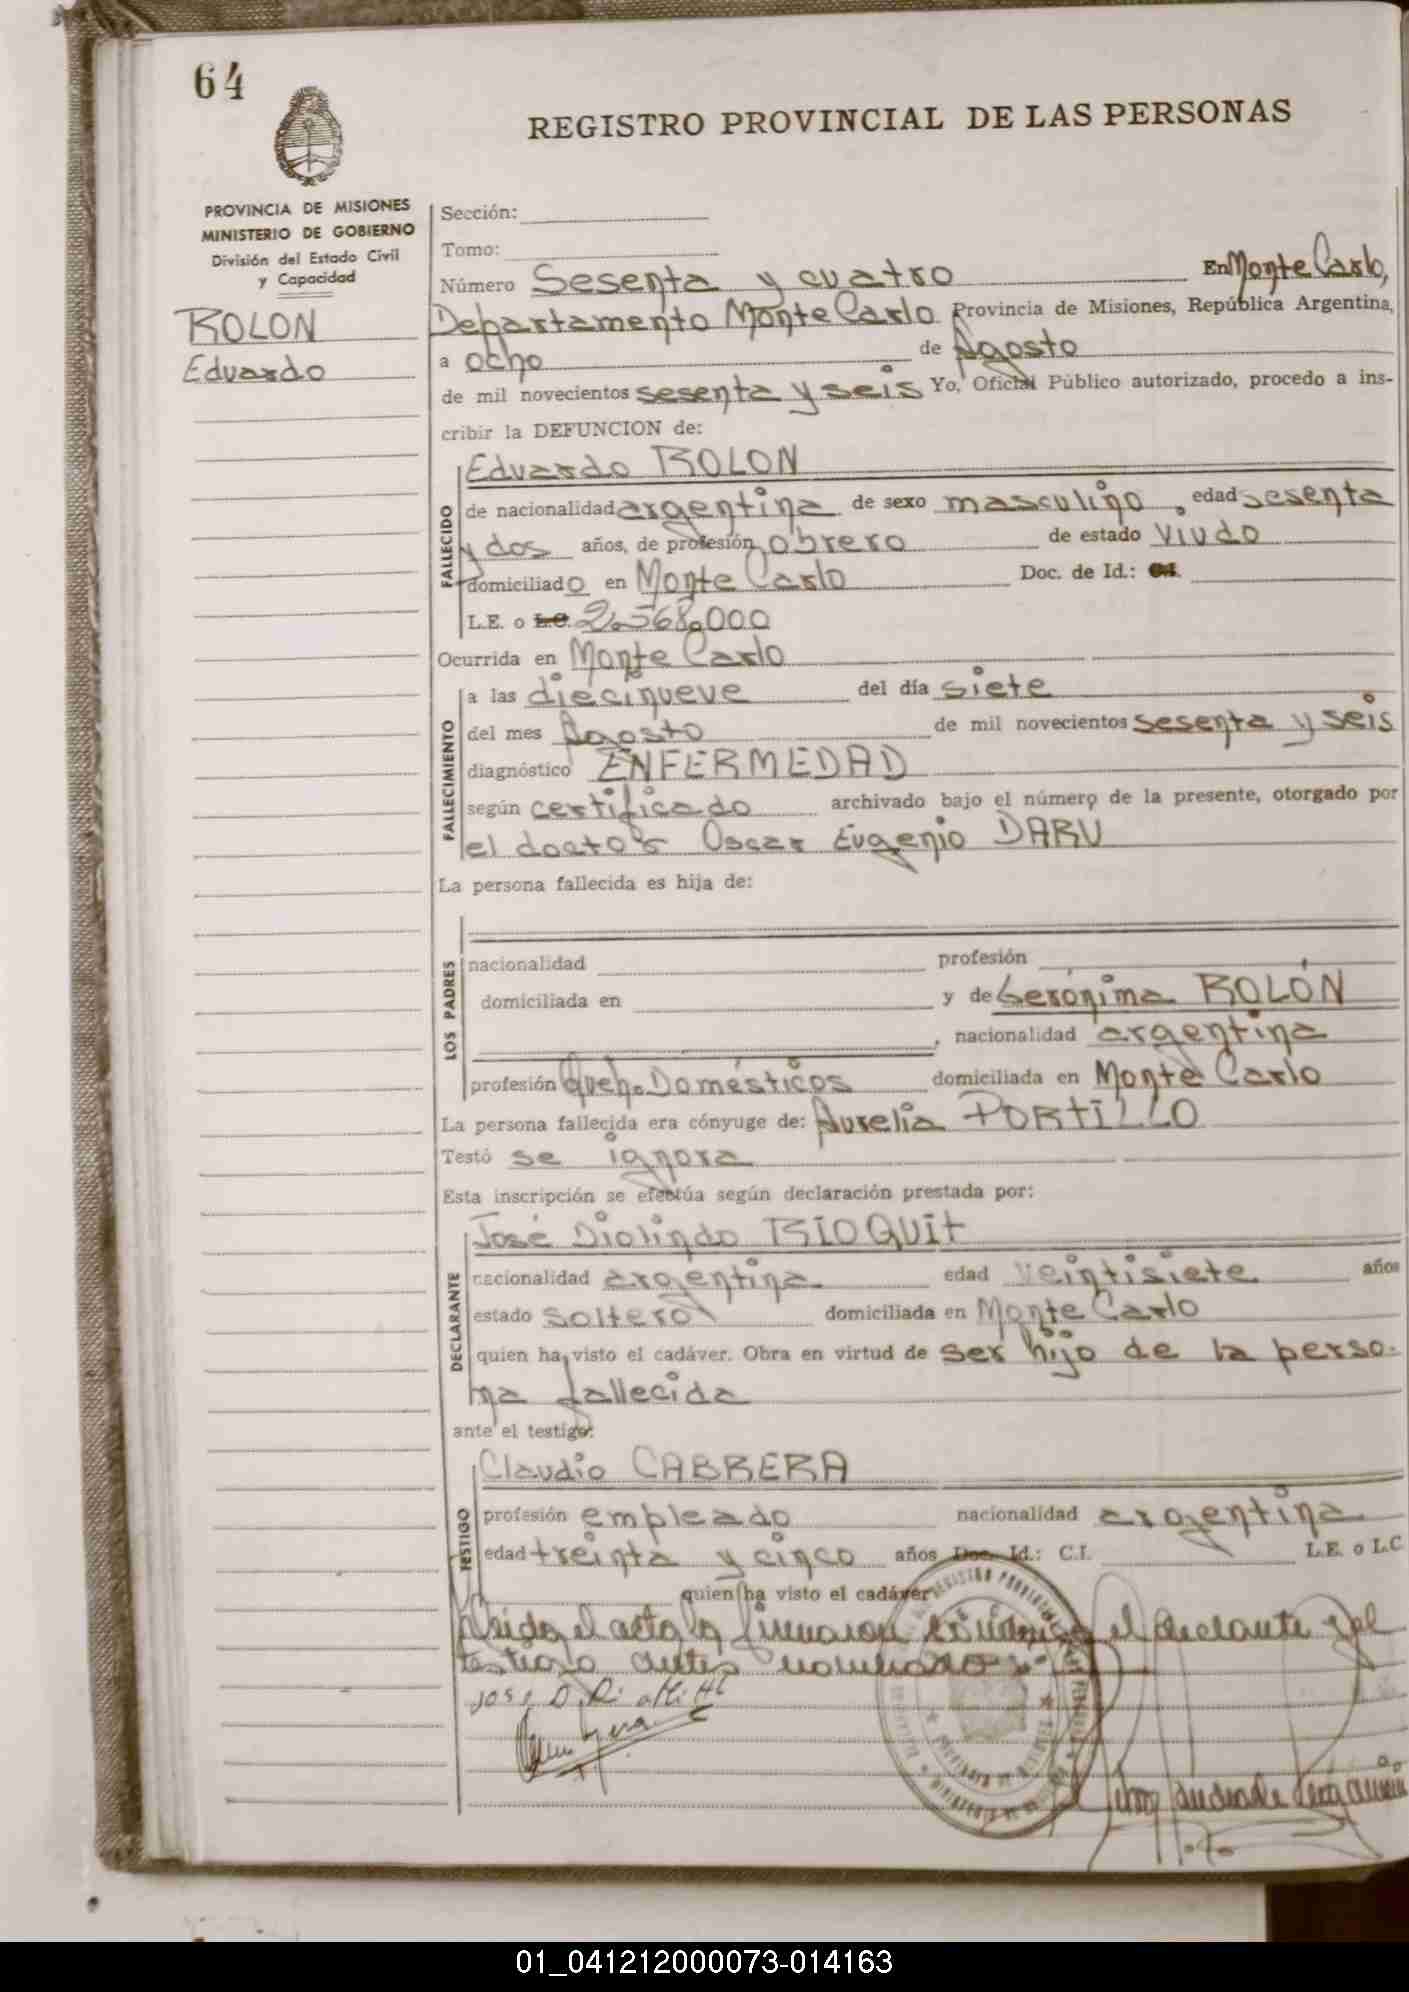 64
REGISTRO PROVINCIAL DE LAS PERSONAS
PROVINCIA DE MISIONES
MINISTERIO DE GOBIERNO
División del Estado Civil
y Capacidad
ROLON
Eduardo
Sección:
Tomo:
Número Sesenta y cuatro En Monte Carlo,
Departamento Monte Carlo Provincia de Misiones, República Argentina,
a ocho de Agosto
de mil novecientos sesenta y seis Yo, Oficial Público autorizado, procedo a ins-
cribir la DEFUNCION de:
FALLECIDO
Eduardo ROLON
de nacionalidad argentina de sexo masculino, edad sesenta
y dos años, de profesión obrero de estado viudo
domiciliado en Monte Carlo Doc. de Id.:
L.E. o L.C. 2.568.000
Ocurrida en Monte Carlo
FALLECIMIENTO
a las diecinueve del día siete
del mes Agosto de mil novecientos sesenta y seis
diagnóstico ENFERMEDAD
según certificado archivado bajo el número de la presente, otorgado por
el doctor Oscar Eugenio DARU
La persona fallecida es hija de:
LOS PADRES
nacionalidad profesión
domiciliada en y de Gerónima ROLÓN
, nacionalidad argentina
profesión Queh. Domésticos domiciliada en Monte Carlo
La persona fallecida era cónyuge de: Aurelia PORTILLO
Testó se ignora
Esta inscripción se efectúa según declaración prestada por:
DECLARANTE
José Diolindo RIOQUIT
nacionalidad argentina edad veintisiete años
estado soltero domiciliada en Monte Carlo
quien ha visto el cadáver. Obra en virtud de ser hijo de la perso-
na fallecida
ante el testigo:
TESTIGO
Claudio CABRERA
profesión empleado nacionalidad argentina
edad treinta y cinco años Doc. Id.: C.I. L.E. o L.C
quien ha visto el cadáver
Leida el acta la firmaron conmigo el declarante y el
testigo antes nombrado
01_041212000073-014163